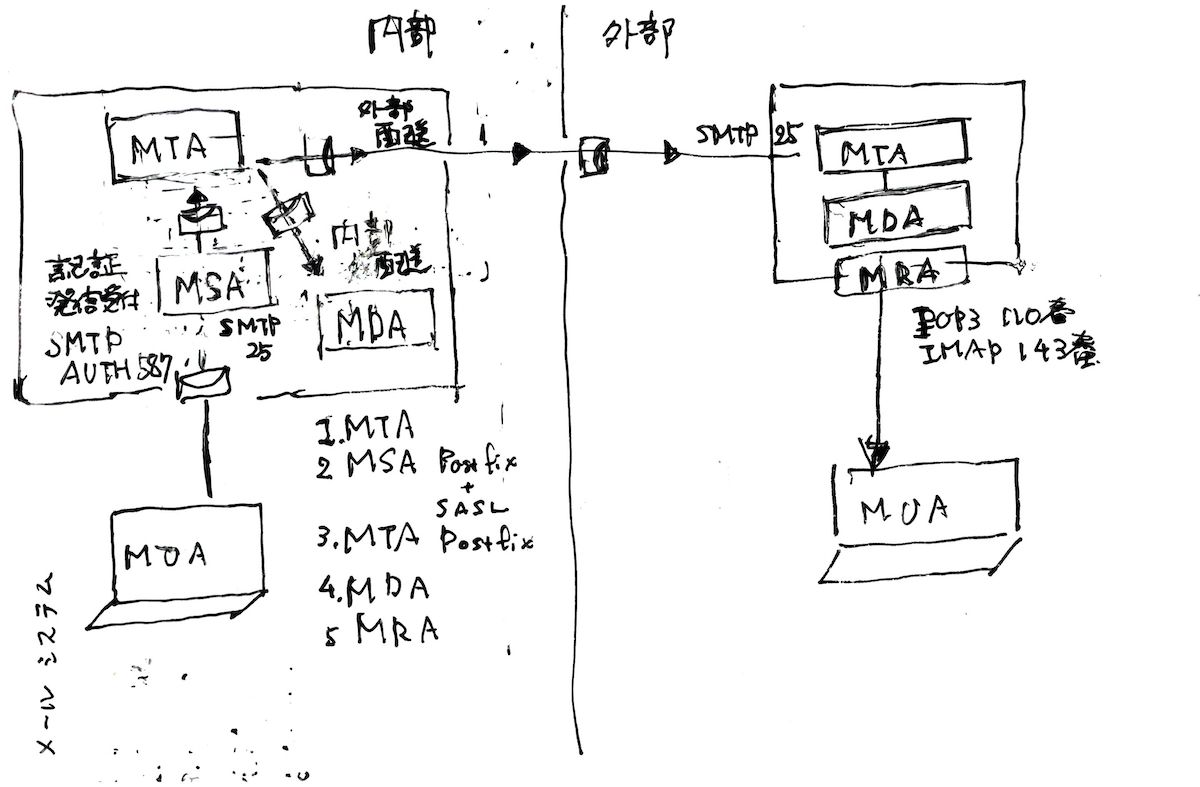 内部
外部
MTA
外部
配送
SMTP 25
MTA
MDA
MRA
内部
配送
認証
発信受付
MSA
SMTP
25
SMTP
AUTH 587
MDA
POP3 110番
IMAP 143番
1.MTA
2 MSA Postfix
+
SASL
3.MTA Postfix
4.MDA
5 MRA
MUA
MUA
メールシステム